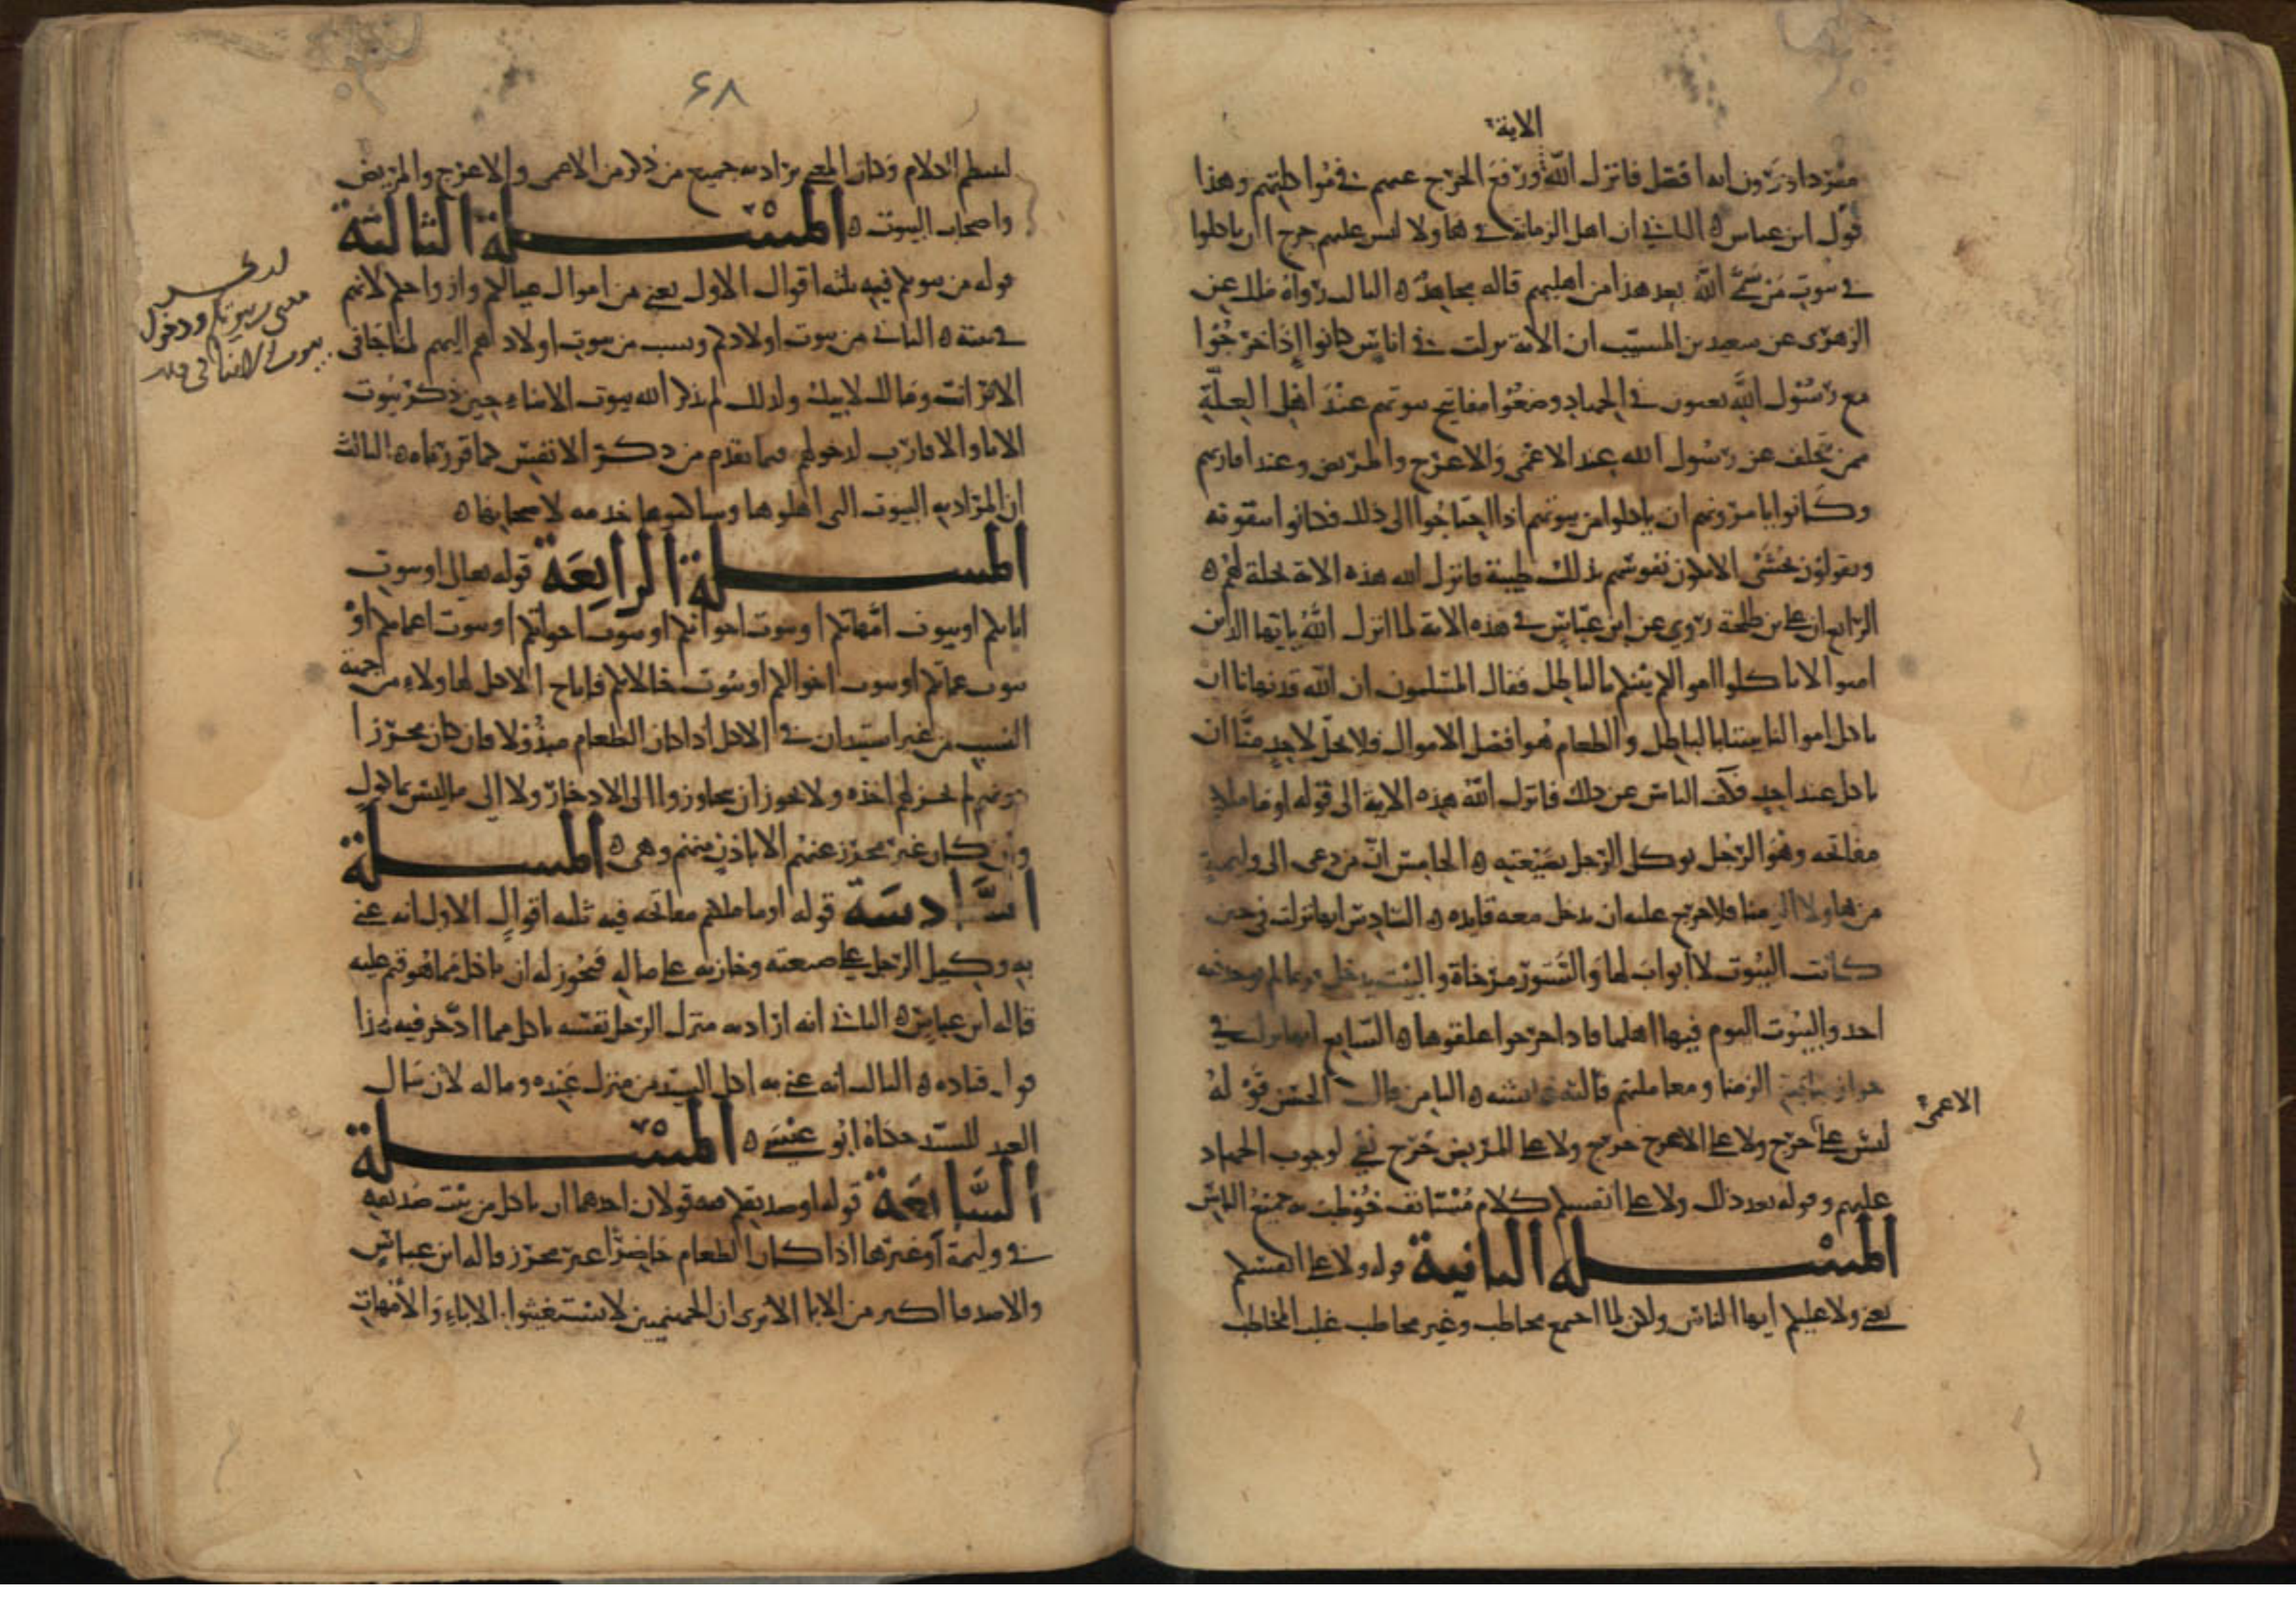 الاية
مفردا ويرون انه افضل فانزل الله ورفع الحرج عنهم في مواكلتهم وهذا
قول ابن عباس ه الثاني ان اهل الزمانة هاولا ليس عليهم حرج ان ياكلوا
في بيوت من سمى الله بعد هذا من اهليهم قاله مجاهد ه الثالث رواه ملك عن
الزهري عن سعيد بن المسيب ان الاية نزلت في اناس كانوا إذا خرجوا
مع رسول الله يعنون في الجهاد وضعوا مفاتيح بيوتهم عند اهل العلة
ممن تخلف عن رسول الله عند الاعمى والاعرج والمريض وعند اقاربهم
وكانوا يامرونهم ان ياكلوا من بيوتهم اذا احتاجوا الى ذلك فكانوا يتقونه
ويقولون نخشى الا تكون نفوسهم بذلك طيبة فانزل الله هذه الاية تحلة لهم ه
الرابع ان علي بن طلحة روى عن ابن عباس في هذه الاية لما انزل الله يايها الذين
امنوا لا تاكلوا اموالكم بينكم بالباطل فقال المسلمون ان الله قد نهانا ان
ناكل اموالنا بيننا بالباطل والطعام هو افضل الاموال فلا يحل لاحد منا ان
ياكل عند احد فكف الناس عن ذلك فانزل الله هذه الاية الى قوله او ما ملكتم
مفاتحه وهو الرجل يوكل الرجل بضيعته ه الخامس ان من دعي الى وليمة
من هاولا الزمنا فلا حرج عليه ان يدخل معه قايده ه السادس انها نزلت في حين
كانت البيوت لا ابواب لها والستور مرخاة والبيت يدخل فربما لم يوجد فيه
احد والبيوت اليوم فيها اهلها فاذا خرجوا اغلقوها ه السابع انها نزلت في
جواز مبايعة الزمنا ومعاملتهم قالته عايشة ه الثامن قال الحسن قوله
ليس على حرج ولا على الاعرج حرج ولا على المريض حرج نفي لوجوب الجهاد
الاعمى
عليهم وقوله بعد ذلك ولا على انفسكم كلام مستانف خوطب به جميع الناس
المسلة الثانية قوله ولا على انفسكم
يعني ولا عليكم ايها الناس ولكن لما اجتمع مخاطب وغير مخاطب غلب المخاطب
٦٨
لينتظم الكلام وكان المعنى يراد به جميع من ذكر من الاعمى والاعرج والمريض
واصحاب البيوت ه المسلة الثالثة
قوله من بيوتكم فيه ثلثة اقوال الاول يعني من اموال عيالكم وازواجكم لانهم
في بيته ه الثاني من بيوت اولادكم ونسب من بيوت اولادهم اليهم لما جا في
الاثر انت ومالك لابيك ولذلك لم يذكر الله بيوت الابناء حين ذكر بيوت
الابا والاقارب لدخولهم فيما تقدم من ذكر الانفس كما قررناه ه الثالث
ان المراد به البيوت التي اهلوها وساكنوها خدمه لاصحابها ه
المسلة الرابعة قوله تعالى او بيوت
ابايكم او بيوت امهاتكم او بيوت اخوانكم او بيوت اخواتكم او بيوت اعمامكم او
بيوت عماتكم او بيوت اخوالكم او بيوت خالاتكم فاباح الاكل لهاولاء من جهة
النسب من غير استيذان في الاكل اذا كان الطعام مبذولا فان كان محرزا
دونهم لم يجز لهم اخذه ولا يجوز ان يجاوزوا الى الادخار ولا الى ما ليس بماكول
وان كان غير محرز عنهم الا باذن منهم وهى ه المسلة
السادسة قوله او ما ملكتم مفاتحه فيه ثلثه اقوال الاول انه عني
به وكيل الرجل على ضيعته وخازنه على ماله فيجوز له ان ياكل مما هو قيم عليه
قاله ابن عباس ه الثاني انه اراد به منزل الرجل نفسه ياكل مما ادخر فيه هذا
قول قتاده ه الثالث انه عني به اكل السيد من منزل عبده وماله لان مال
العبد للسيد حكاه ابن عيسى ه المسلة
السابعة قوله او صديقكم فيه قولان احدهما ان ياكل من بيت صديقه
في وليمة أو غيرها اذا كان الطعام حاضرا غير محرز قاله ابن عباس
والاصدقا اكبر من الابا الا ترى ان الجهنميين لا يستغيثوا الاباء والامهات